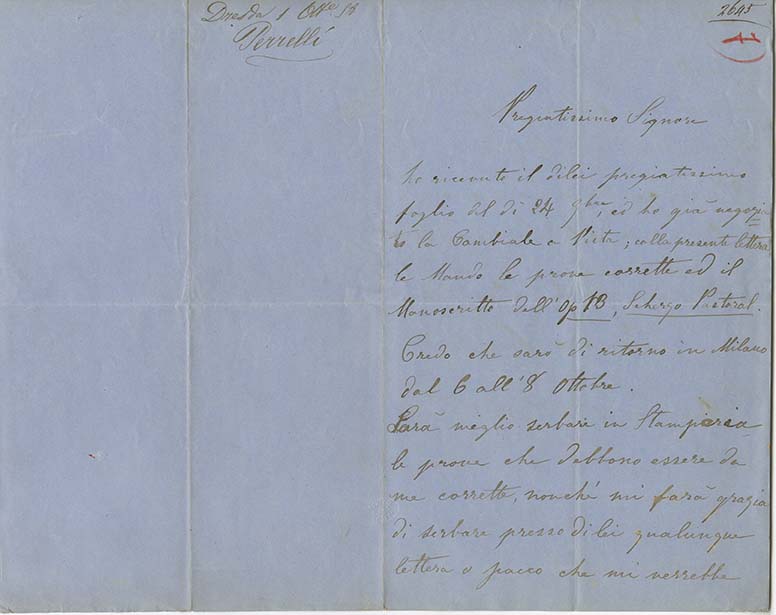 Dresda 1 Otte 58
Perrelli
2645
1
Pregiatissimo Signore
ho ricevuto il di lei pregiatissimo
foglio del di 24 9bre, ed ho già negozia
to la Cambiale a Vista; colla presente lettera
le Mando le prove corrette ed il
Manoscritto dell'Op 18, Scherzo Pastoral.
Credo che sarò di ritorno in Milano
dal 6 all'8 Ottobre.
Sarà meglio serbare in Stamperia
le prove che debbono essere da
me corrette, nonché mi farà grazia
di serbare presso di lei qualunque
lettera o pacco che mi verrebbe